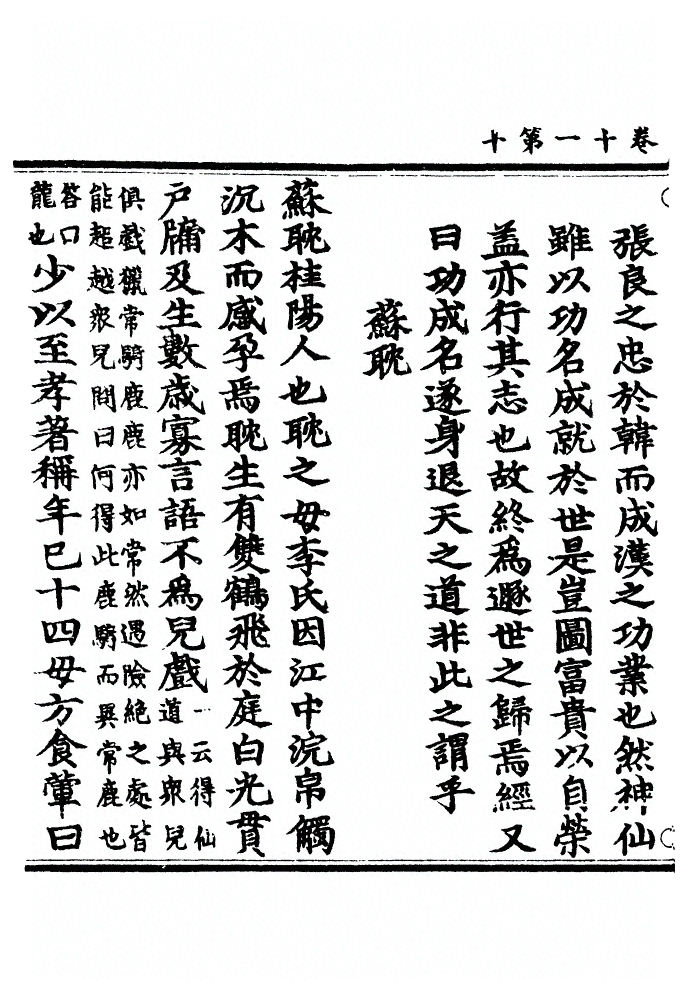 卷十一第十
張良之忠於韓而成漢之功業也然神仙
雖以功名成就於世是豈圖富貴以自榮
盖亦行其志也故終爲遯世之歸焉經又
曰功成名遂身退天之道非此之謂乎
蘇耽
蘇耽桂陽人也耽之母李氏因江中浣帛觸
沉木而感孕焉耽生有雙鶴飛於庭白光貫
戶牖及生數歲寡言語不爲兒戲一云得仙
道與衆兒
俱戲獵常騎鹿鹿亦如常然遇險絕之處皆
能超越衆兒問曰何得此鹿騎而異常鹿也
答曰
龍也少以至孝著稱年已十四母方食葷曰